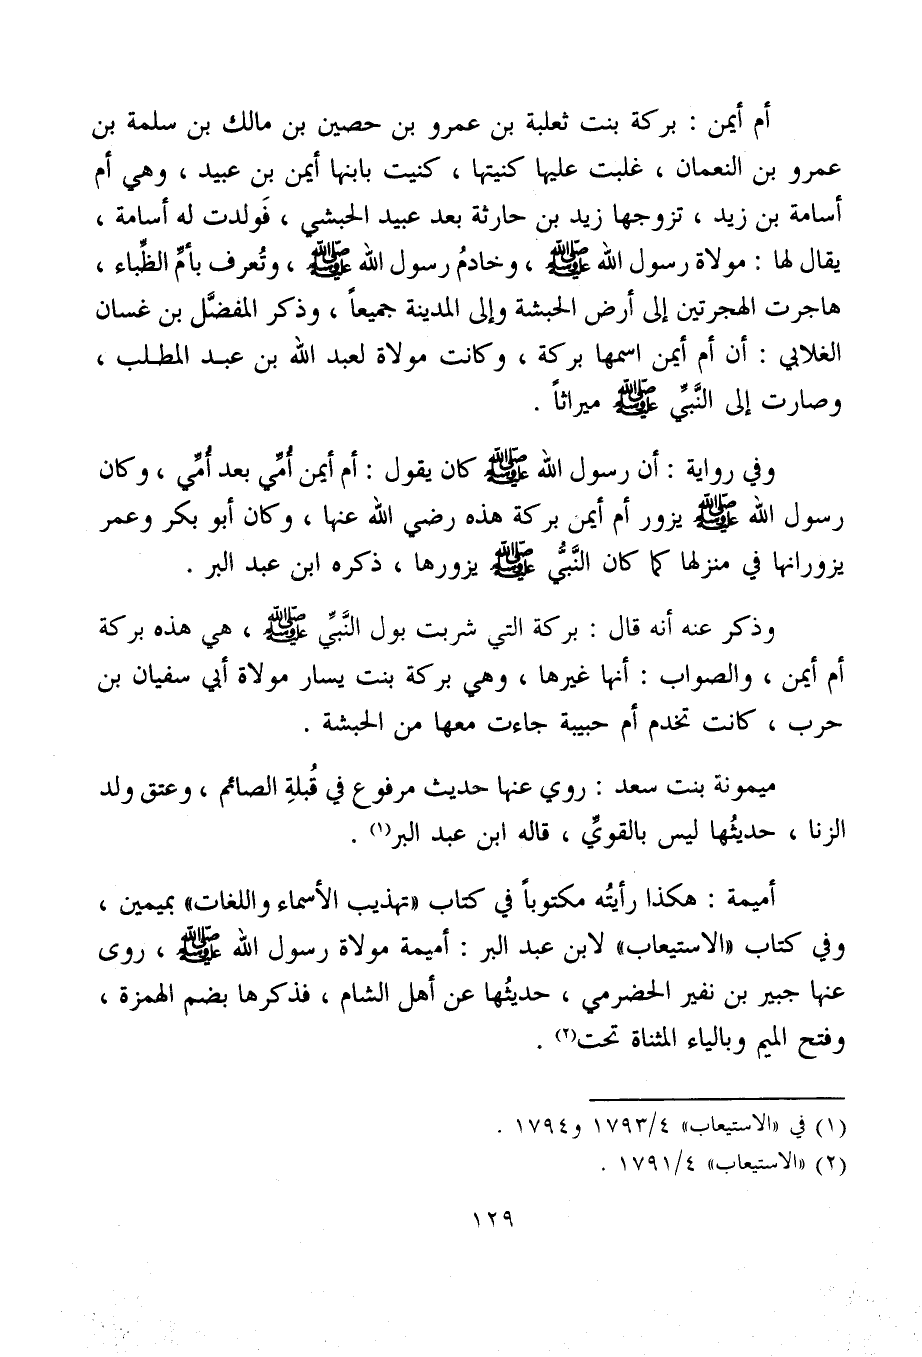 أم أيمن : بركة بنت ثعلبة بن عمرو بن حصين بن مالك بن سلمة بن
عمرو بن النعمان ، غلبت عليها كنيتها ، كنيت بابنها أيمن بن عبيد ، وهي أم
أسامة بن زيد ، تزوجها زيد بن حارثة بعد عبيد الحبشي ، فَولدت له أسامة ،
يقال لها : مولاة رسول الله ﷺ ، وخادمُ رسول الله ﷺ ، وتُعرف بأمِّ الظِّباء ،
هاجرت الهجرتين إلى أرض الحبشة وإلى المدينة جميعاً ، وذكر المفضَّل بن غسان
الغلابي : أن أم أيمن اسمها بركة ، وكانت مولاة لعبد الله بن عبـد المطـلب ،
وصارت إلى النَّبيِّ ﷺ ميراثاً .
وفي رواية : أن رسول الله ﷺ كان يقول : أم أيمن أُمِّي بعد أُمِّي ، وكان
رسول الله ﷺ يزور أم أيمن بركة هذه رضي الله عنها ، وكان أبو بكر وعمر
يزورانها في منزلها كما كان النَّبيُّ ﷺ يزورها ، ذكره ابن عبد البر .
وذكر عنه أنه قال : بركة التي شربت بول النَّبيِّ ﷺ ، هي هذه بركة
أم أيمن ، والصواب : أنها غيرها ، وهي بركة بنت يسار مولاة أبي سفيان بن
حرب ، كانت تخدم أم حبيبة جاءت معها من الحبشة .
ميمونة بنت سعد : روي عنها حديث مرفوع في قُبلةِ الصائم ، وعتق ولد
الزنا ، حديثُها ليس بالقويِّ ، قاله ابن عبد البر(١) .
أميمة : هكذا رأيتُه مكتوباً في كتاب «تهذيب الأسماء واللغات» بميمين ،
وفي كتاب «الاستيعاب» لابن عبد البر : أميمة مولاة رسول الله ﷺ ، روى
عنها جبير بن نفير الحضرمي ، حديثُها عن أهل الشام ، فذكرها بضم الهمزة ،
وفتح الميم وبالياء المثناة تحت(٢) .
(١) في «الاستيعاب» ١٧٩٣/٤ و١٧٩٤ .
(٢) «الاستيعاب» ١٧٩١/٤ .
١٢٩